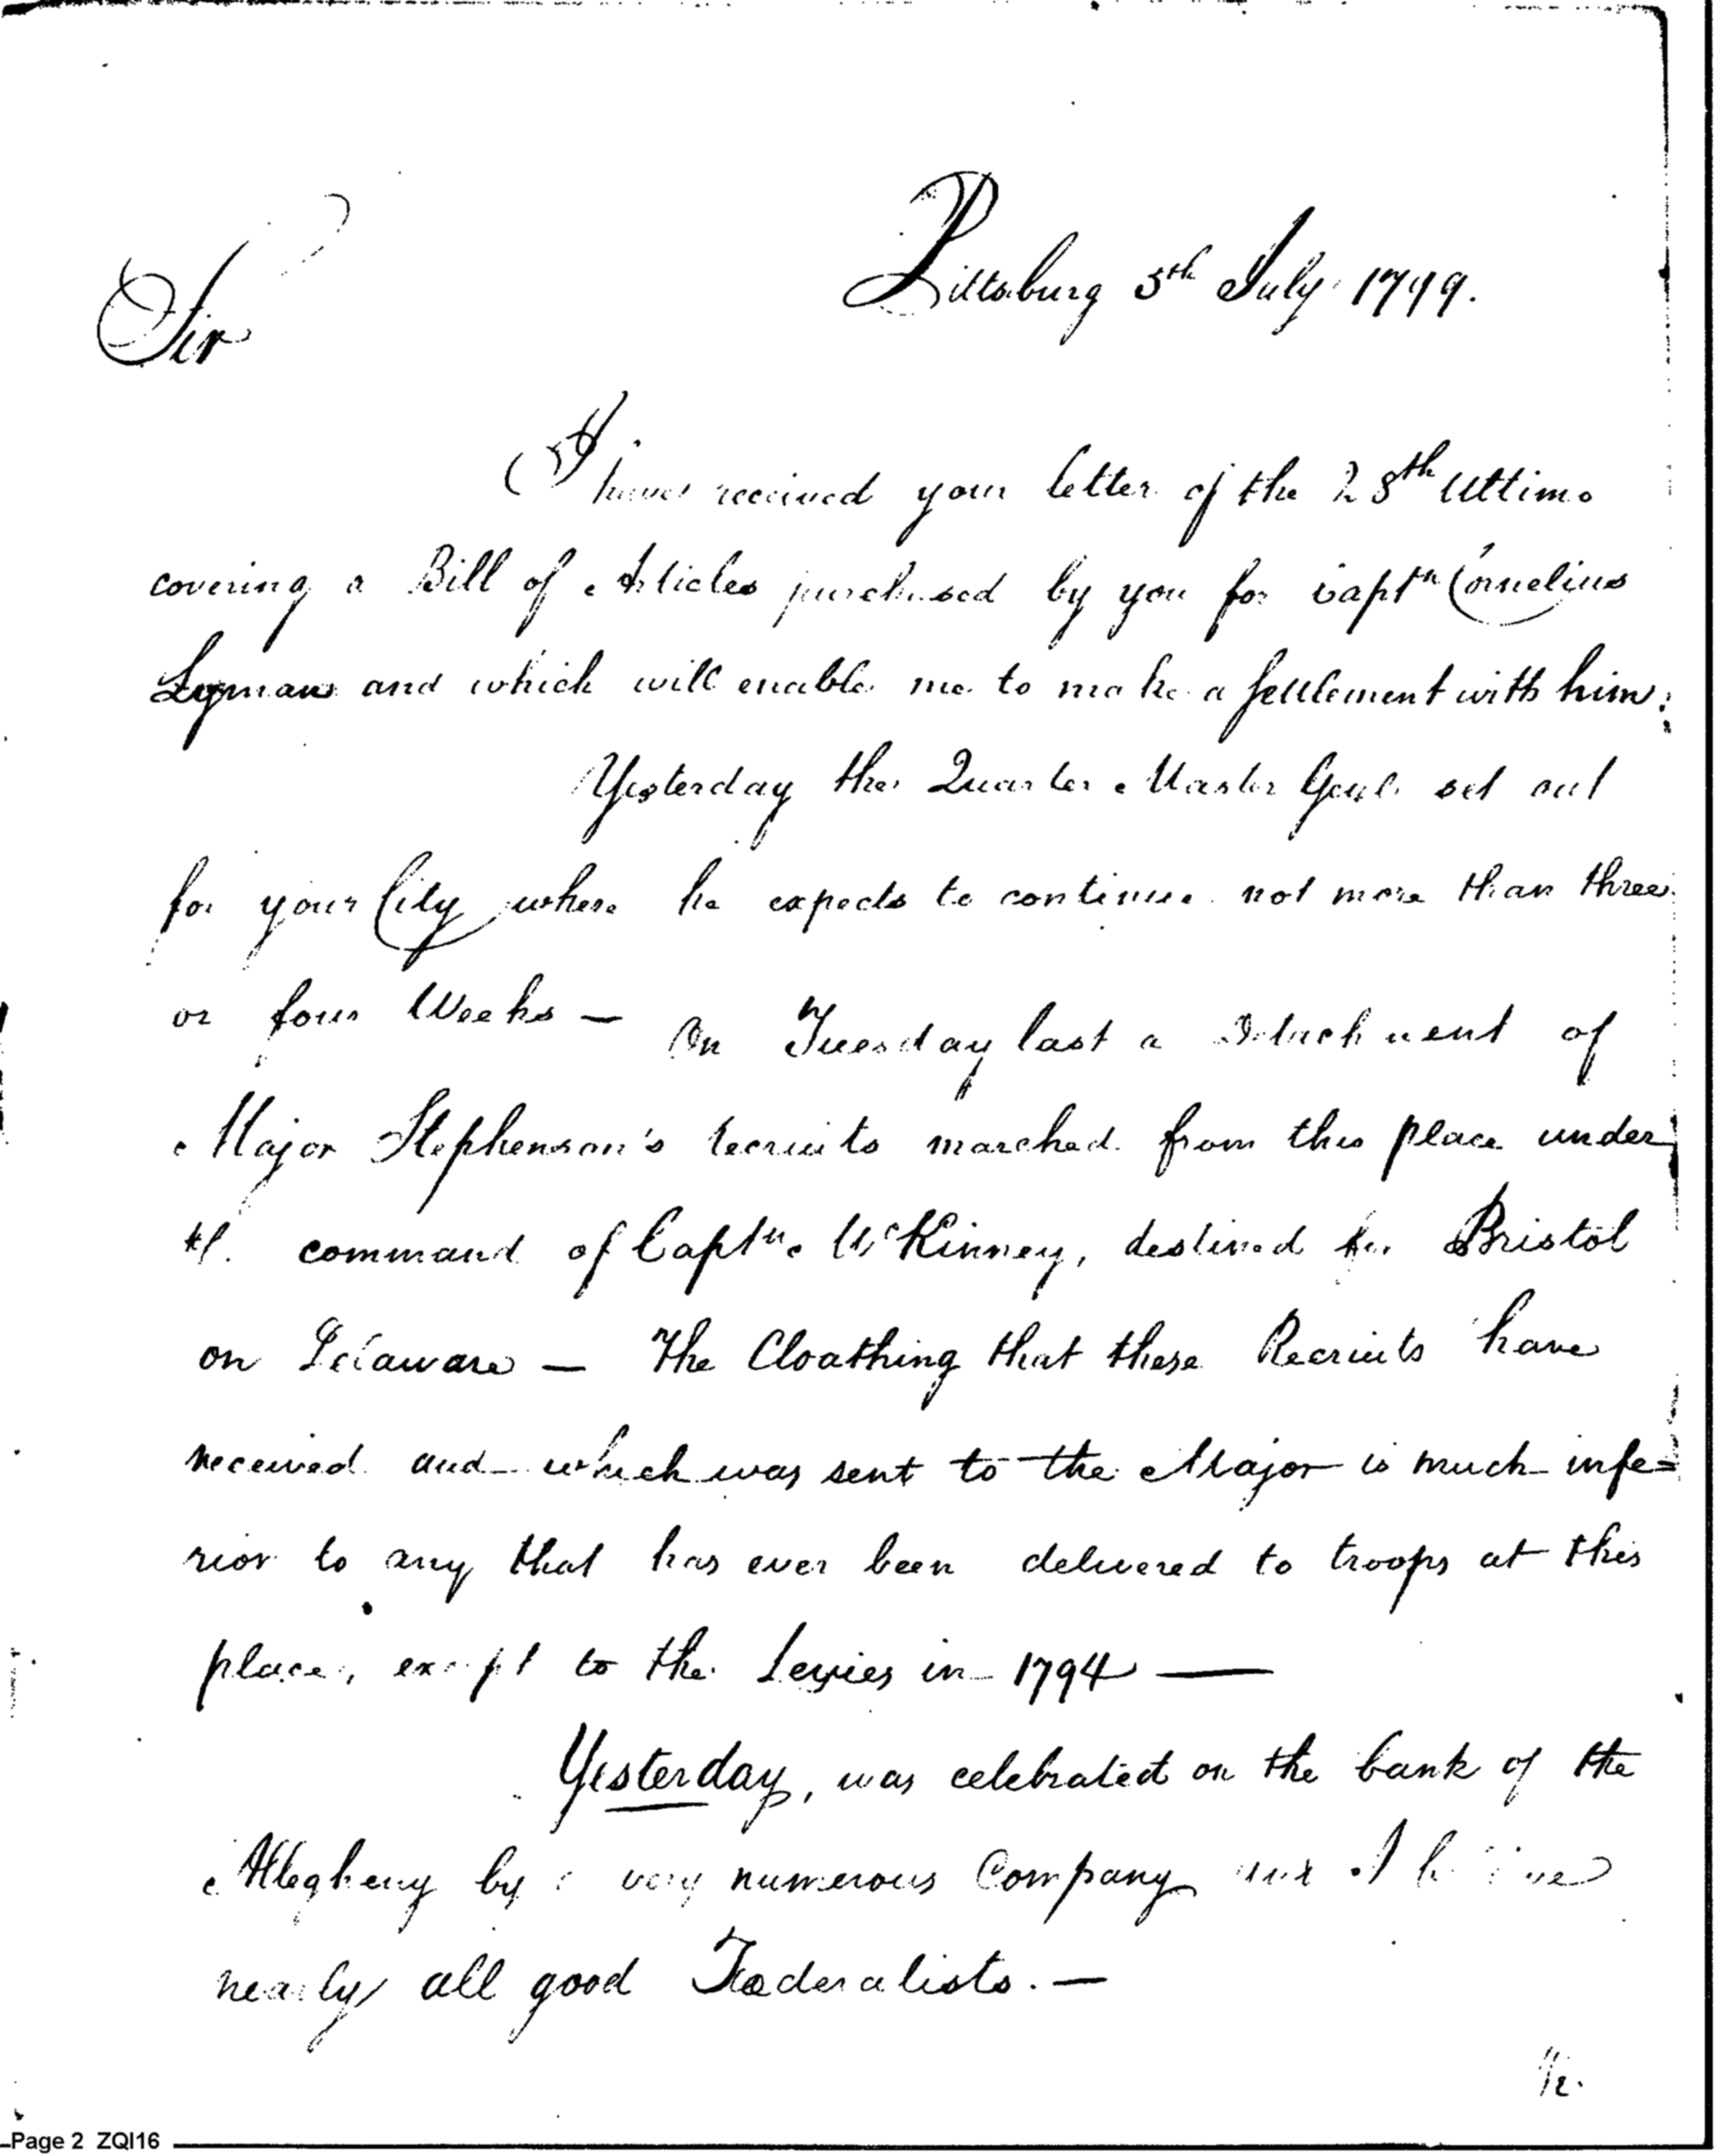 Pittsburg 5th July 1799.
Sir
I have received your letter of the 28th Ultimo
covering a Bill of Articles purchased by you for Captn Cornelius
Lyman and which will enable me to make a settlement with him.
Yesterday the Quarter Master Genl. set out
for your City where he expects to continue not more than three
or four Weeks — On Tuesday last a Detachment of
Major Stephenson's recruits marched from this place under
the command of Captn. McKinney, destined for Bristol
on Delaware — The Cloathing that these Recruits have
received and which was sent to the Major is much infe=
rior to any that has ever been delivered to troops at this
place, except to the Levies in 1794 —
Yesterday, was celebrated on the bank of the
Allegheny by a very numerous Company and I believe
nearly all good Fœderalists. —
Page 2 ZQI16